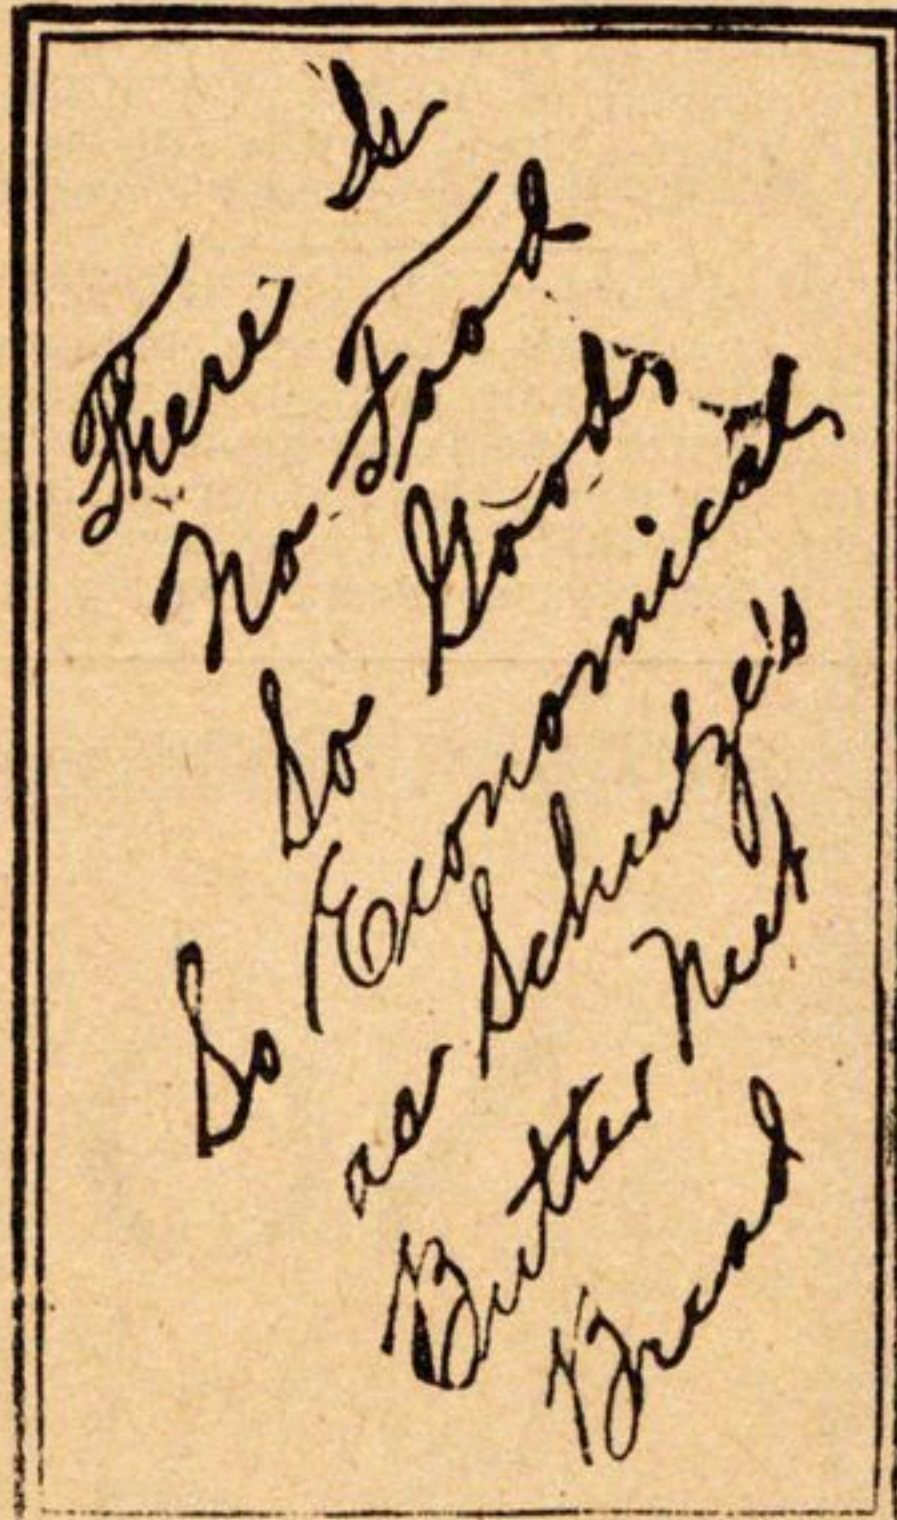 There Is
No Food
So Good,
So Economical,
as Schutze's
Butter Nut
Bread